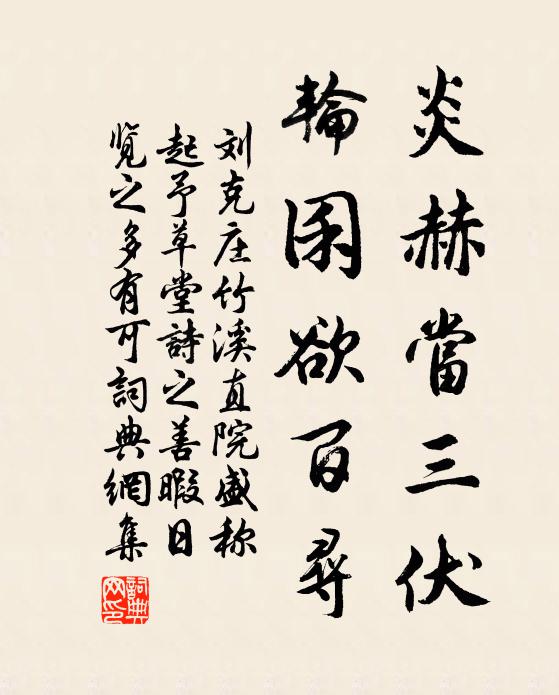 炎赫當三伏
輪囷欲百尋
刘克庄竹溪直院盛称
起予草堂詩之善暇日
覽之多有可詞典網集
詞典網印